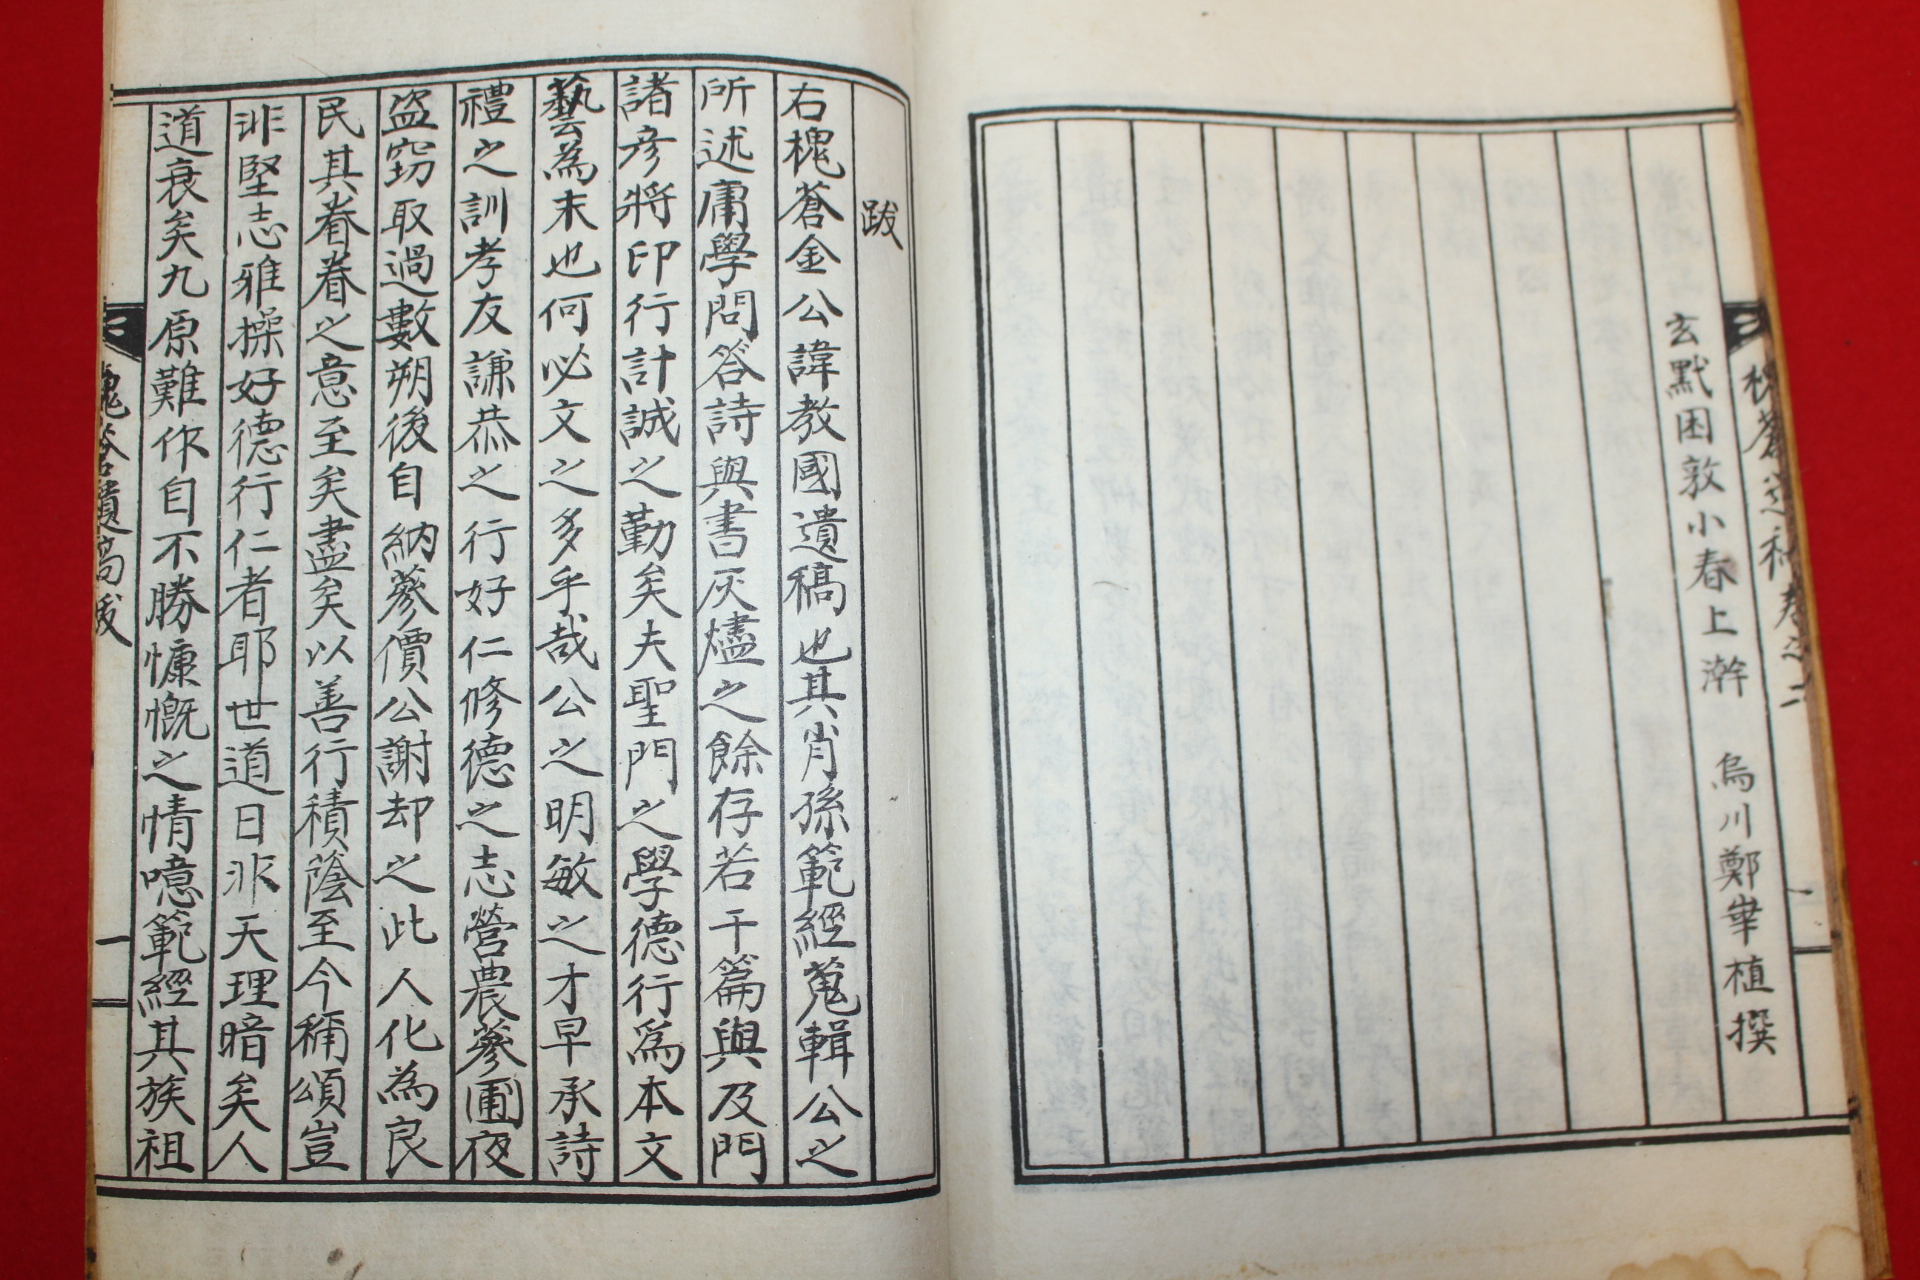 玄黓困敦小春上澣 烏川鄭崋植撰
槐蒼遺稿卷之二
跋
右槐蒼金公諱教國遺稿也其肖孫範經蒐輯公之
所述庸學問答詩與書灰燼之餘存若干篇與及門
諸彦將印行計誠之勤矣夫聖門之學德行爲本文
藝為末也何必文之多乎哉公之明敏之才早承詩
禮之訓孝友謙恭之行好仁修德之志營農蔘圃夜
盜窃取過數朔後自納蔘價公謝却之此人化為良
民其眷眷之意至矣盡矣以善行積蔭至今稱頌豈
非堅志雅操好德行仁者耶世道日非天理暗矣人
道衰矣九原難作自不勝慷慨之情噫範經其族祖
槐蒼遺稿跋
一